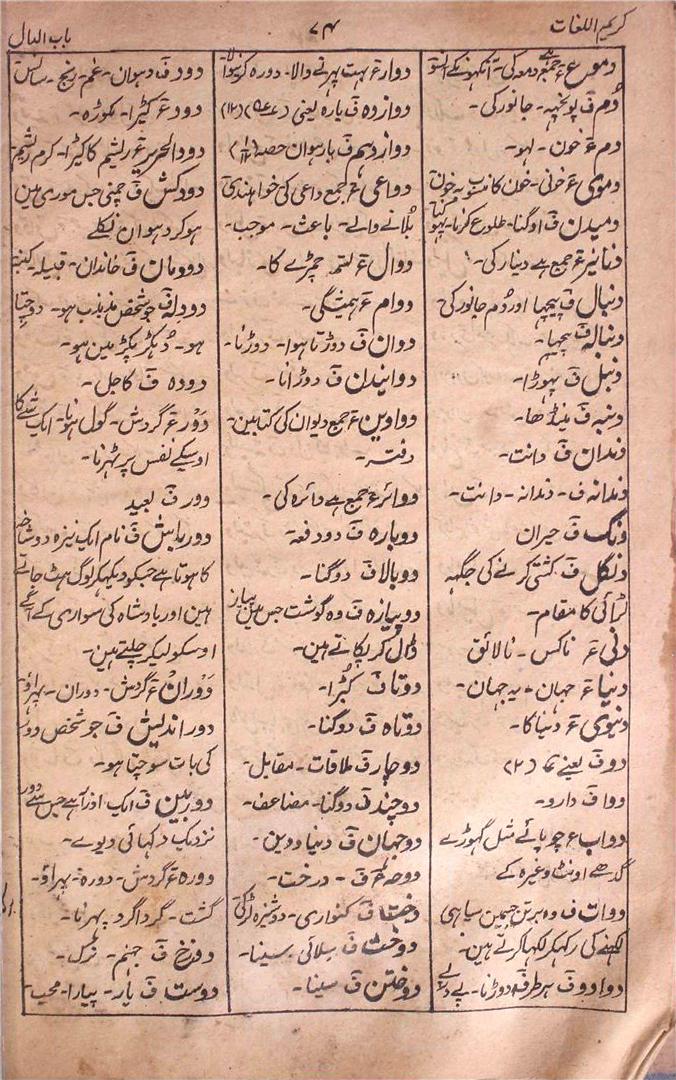 کریم اللغات
۷۴
باب الدال
دموع عَ جمع ہے دمعہ کی۔ آنکھونکے آنسو
دُم فَ پونچھہ۔ جانور کی۔
دم عَ خون۔ لہو۔
دموی عَ خونی۔ خون کا منسوب بہ خون
دمیدن فَ اوگنا۔ طلوع کرنا۔ پھوکنا
دنانیر عَ جمع ہے دینار کی۔
دنبال فَ پیچھا اور دُم جانور کی
دنبالہ فَ پیچھا۔
دنبل فَ پھوڑا۔
دنبہ فَ مینڈھا۔
دندان فَ دانت۔
دندانہ فَ۔ دندانہ۔ دانت۔
دنگ فَ حیران
دنگل فَ کشتی کرنے کی جگہہ
لڑائی کا مقام۔
دنی عَ ناکس۔ نالائق
دنیا عَ جہان۔ یہ جہان۔
دنیوی عَ دنیا کا۔
دو فَ یعنے (۲)
دوا فَ دارو۔
دواب عَ چوپائے مثل گھوڑے
گدھے اونٹ وغیرہ کے
دوات فَ وہ برتن جسمین سیاہی
لکھنے کی رکھکر لکھا کرتے ہین۔
دوادو فَ ہر طرف دوڑنا۔ پے در پے
دوار عَ بہت پھرنے والا۔ دورہ کرنیوالا
دوازدہ فَ بارہ یعنی (۱۲)
دوازدہم فَ بارھوان حصہ (۱/۱۲)
دواعی عَ جمع داعی کی خواہندگی
بُلانے والے۔ باعث۔ موجب۔
دوال عَ تسمہ چمڑے کا۔
دوام عَ ہمیشگی۔
دوان فَ دوڑتا ہوا۔ دوڑنا۔
دوانیدن فَ دوڑانا۔
دواوین عَ جمع دیوان کی کتابین۔
دفتر۔
دوائر عَ جمع ہے دائرہ کی۔
دوبارہ فَ دو دفعہ۔
دوبالا فَ دوگنا۔
دوپیازہ فَ وہ گوشت جس مین پیاز
ڈال کر پکاتے ہین۔
دوتا فَ کُبڑا۔
دوتاہ فَ دوگنا۔
دوچار فَ ملاقات۔ مقابل۔
دوچند فَ دوگنا۔ مضاعف۔
دوجہان فَ دنیا و دین۔
دوحہ عَ فَ۔ درخت۔
دختا فَ کنواری۔ دوشیزہ لڑکی
دوخت فَ سلائی۔ سینا۔
دوختن فَ سینا۔
دود فَ دہوان۔ غم۔ رنج۔ سانس
دود عَ کیڑا۔ مکوڑہ۔
دودالحریر عَ ریشم کا کیڑا۔ کرم ریشم۔
دودکش فَ چمنی جس موری مین
ہو کر دہوان نکلے
دودمان فَ خاندان۔ قبیلہ۔ کنبہ
دودلہ فَ جو شخص مذبذب ہو۔ دوچتا
ہو۔ دُہکڑ پکڑ مین ہو۔
دودہ فَ کاجل۔
دَور عَ گردش۔ گول ہونا۔ ایک شے کا
اوسکے نفس پر پھرنا۔
دور فَ بعید
دورباش فَ نام ایک نیزہ دوشاخہ
کا ہوتا ہے جسکو دیکھکر لوگ ہٹ جاتے
ہین اور بادشاہ کی سواری کے آگے
اوسکو لیکر چلتے ہین۔
دَوران عَ گردش۔ دوران۔ پھراؤ۔
دوراندیش فَ جو شخص دور
کی بات سوچتا ہو۔
دوربین فَ ایک اوزار ہے جس سے دور
نزدیک دکھائی دیوے۔
دورہ عَ گردش۔ دورہ۔ پھراؤ۔
گشت۔ گرداگرد پھرنا۔
دوزخ فَ جہنم۔ نرک۔
دوست فَ یار۔ پیارا۔ محب۔